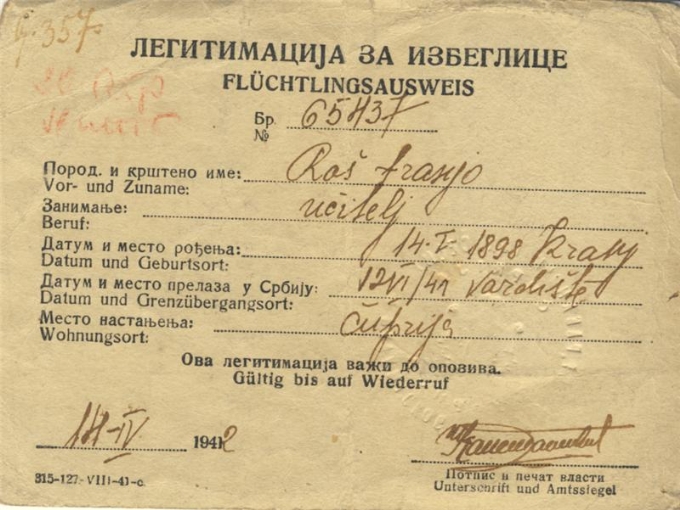 357
ЛЕГИТИМАЦИЈА ЗА ИЗБЕГЛИЦЕ
FLÜCHTLINGSAUSWEIS
Бр. 65437
№
Пород. и крштено име: Roš Franjo
Vor- und Zuname:
Занимање: učitelj
Beruf:
Датум и место рођења: 14. I. 1898 Kranj
Datum und Geburtsort:
Датум и место прелаза у Србију: 12 VI/41 Vardište
Datum und Grenzübergangsort:
Место настањења: Ćuprija
Wohnungsort:
Ова легитимација важи до опозива.
Gültig bis auf Wiederruf
14-IV 1942
315-127-VIII-41-с.
Потпис и печат власти
Unterschrift und Amtssiegel